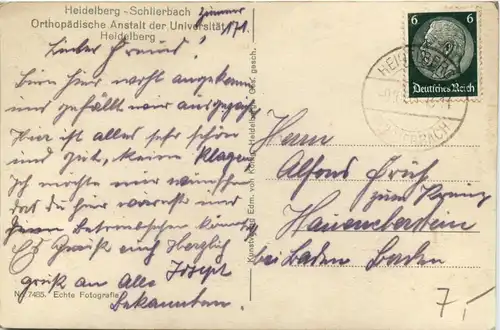 Heidelberg - Schlierbach
Orthopädische Anstalt der Universität
Heidelberg
Zimmer
171.
Lieber Freund!
Bin hier wohl angekommen
und gefällt mir
Hier ist alles sehr schön
und gut, keine Klagen
Ich möchte mir wünschen
daß du hier warest und
Es Grüßt euch Herzlich
gruß an Alle Josef
Bekannten.
No. 7485. Echte Fotografie
Kunstverlag Edm. von König, Heidelberg. Ges. gesch.
6 6
Deutsches Reich
HEIDELBERG
SCHLIERBACH
Herrn
Alfons
zum König
Haueneberstein
bei Baden Baden
7,-